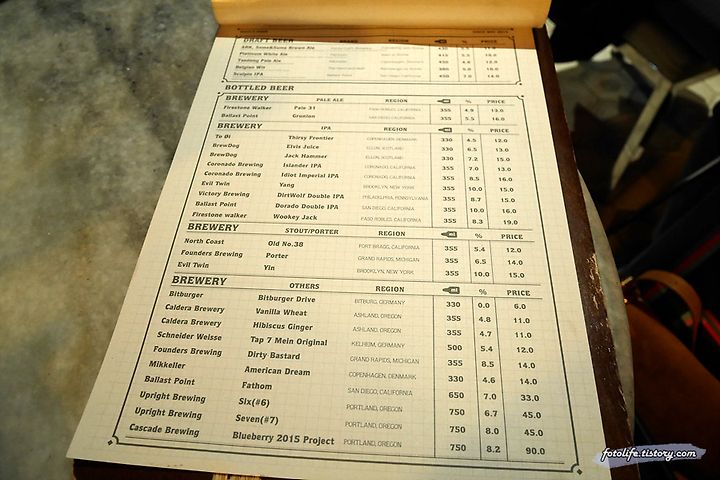 DRAFT BEER BRAND REGION PRICE
ARK, Some&Sums Brown Ale
Platinum White Ale
Yandong Pale Ale
Belgian Wit
Sculpin IPA
BOTTLED BEER
BREWERY PALE ALE REGION ml % PRICE
Firestone Walker Pale 31 PASO ROBLES, CALIFORNIA 355 4.9 13.0
Ballast Point Grunion SAN DIEGO, CALIFORNIA 355 5.5 16.0
BREWERY IPA REGION ml % PRICE
To Øl Thirsty Frontier COPENHAGEN, DENMARK 330 4.5 12.0
BrewDog Elvis Juice ELLON, SCOTLAND 330 6.5 13.0
BrewDog Jack Hammer ELLON, SCOTLAND 330 7.2 15.0
Coronado Brewing Islander IPA CORONADO, CALIFORNIA 355 7.0 13.0
Coronado Brewing Idiot Imperial IPA CORONADO, CALIFORNIA 355 8.5 16.0
Evil Twin Yang BROOKLYN, NEW YORK 355 10.0 15.0
Victory Brewing DirtWolf Double IPA PHILADELPHIA, PENNSYLVANIA 355 8.7 15.0
Ballast Point Dorado Double IPA SAN DIEGO, CALIFORNIA 355 10.0 16.0
Firestone walker Wookey Jack PASO ROBLES, CALIFORNIA 355 8.3 19.0
BREWERY STOUT/PORTER REGION ml % PRICE
North Coast Old No.38 FORT BRAGG, CALIFORNIA 355 5.4 12.0
Founders Brewing Porter GRAND RAPIDS, MICHIGAN 355 6.5 14.0
Evil Twin Yin BROOKLYN, NEW YORK 355 10.0 15.0
BREWERY OTHERS REGION ml % PRICE
Bitburger Bitburger Drive BITBURG, GERMANY 330 0.0 6.0
Caldera Brewery Vanilla Wheat ASHLAND, OREGON 355 4.8 11.0
Caldera Brewery Hibiscus Ginger ASHLAND, OREGON 355 4.7 11.0
Schneider Weisse Tap 7 Mein Original KELHEIM, GERMANY 500 5.4 12.0
Founders Brewing Dirty Bastard GRAND RAPIDS, MICHIGAN 355 8.5 14.0
Mikkeller American Dream COPENHAGEN, DENMARK 330 4.6 14.0
Ballast Point Fathom SAN DIEGO, CALIFORNIA 650 7.0 33.0
Upright Brewing Six(#6) PORTLAND, OREGON 750 6.7 45.0
Upright Brewing Seven(#7) PORTLAND, OREGON 750 8.0 45.0
Cascade Brewing Blueberry 2015 Project PORTLAND, OREGON 750 8.2 90.0
fotolife.tistory.com